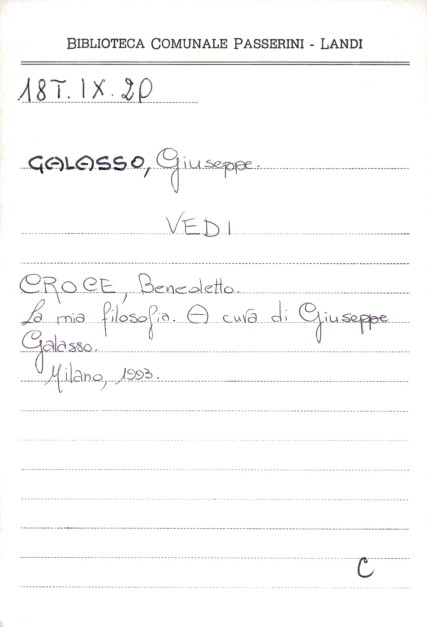 BIBLIOTECA COMUNALE PASSERINI - LANDI
18T.IX.20
GALASSO, Giuseppe.
VEDI
CROCE, Benedetto.
La mia filosofia. A cura di Giuseppe
Galasso.
Milano, 1993.
C